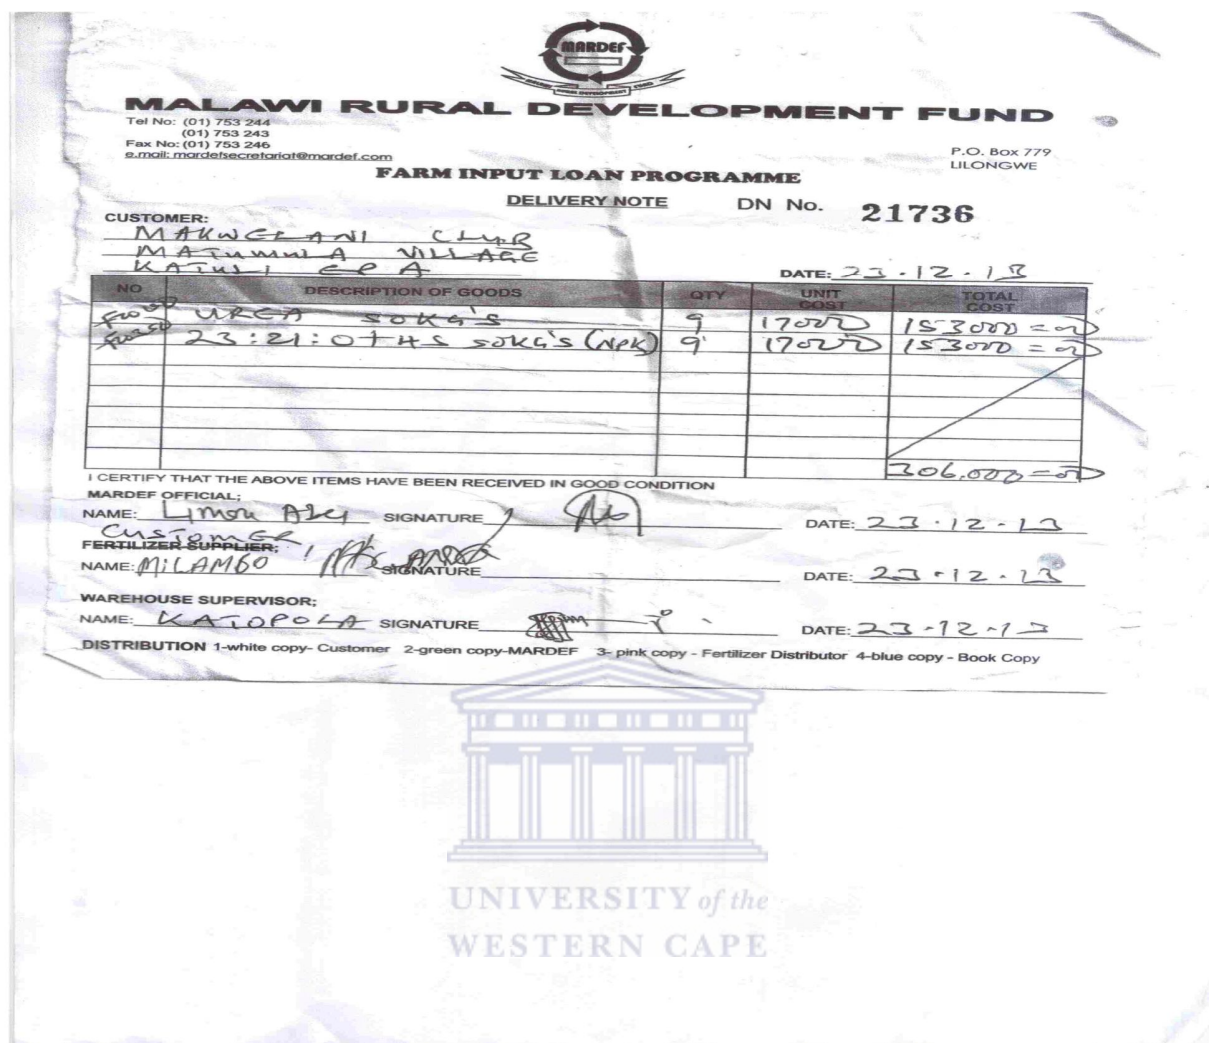 MARDEF
MALAWI RURAL DEVELOPMENT FUND
Tel No: (01) 753 244
(01) 753 243
Fax No: (01) 753 246
e.mail: mardefsecretariat@mardef.com
P.O. Box 779
LILONGWE
FARM INPUT LOAN PROGRAMME
DELIVERY NOTE DN No. 21736
CUSTOMER:
MAKWELANI CLUB
MATUMULA VILLAGE
KATULI EPA
DATE: 23.12.13
NO DESCRIPTION OF GOODS QTY UNIT COST TOTAL COST
UREA 50KG'S 9 17000 153000=00
23:21:0+4S 50KG'S (NPK) 9 17000 153000=00
306,000=00
I CERTIFY THAT THE ABOVE ITEMS HAVE BEEN RECEIVED IN GOOD CONDITION
MARDEF OFFICIAL;
NAME: Limon SIGNATURE DATE: 23.12.13
CUSTOMER
FERTILIZER SUPPLIER;
NAME: MILAMBO SIGNATURE DATE: 23.12.13
WAREHOUSE SUPERVISOR;
NAME: KATOPOLA SIGNATURE DATE: 23-12-13
DISTRIBUTION 1-white copy- Customer 2-green copy-MARDEF 3- pink copy - Fertilizer Distributor 4-blue copy - Book Copy
UNIVERSITY of the
WESTERN CAPE